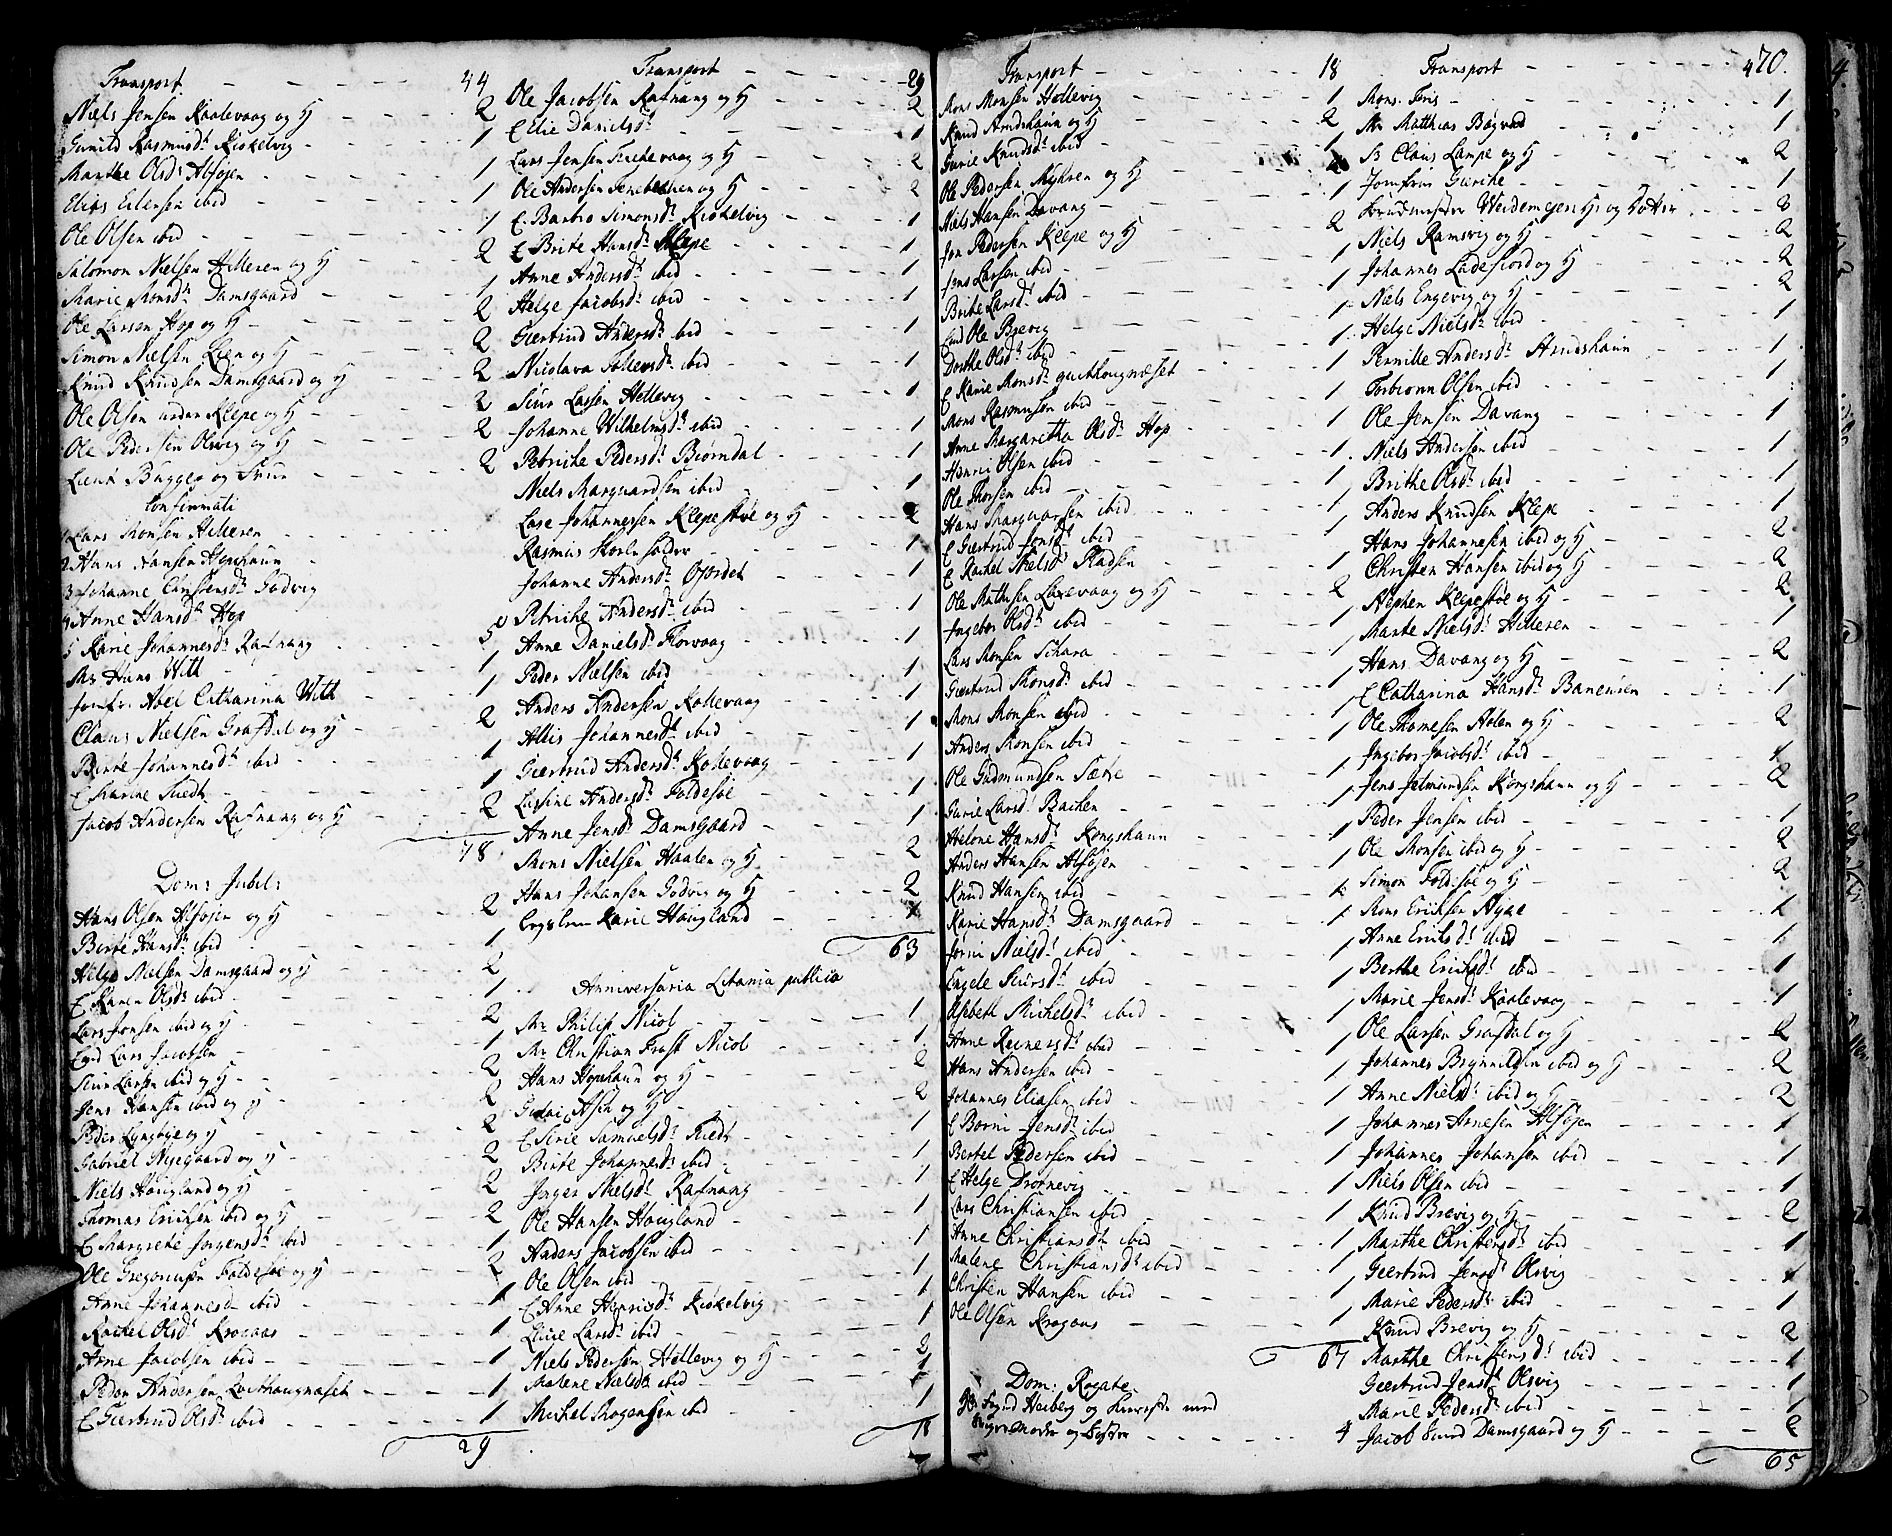 Transport - - - 44
Niels Jensen Kaalevaag og H - 2
Gunild Rasmusd. Kiökelvig - 1
Marthe Olsd. Alföjen - 1
Elias Eilersen ibid - 1
Ole Olsen ibid - 1
Salomon Nielsen Hilleren og H - 2
Marie Monsd. Damsgaard - 1
Ole Larsen Hop og H - 2
Simon Nielsen Lien og H - 2
Knud Knudsen Damsgaard og H - 2
Ole Olsen Klepe og H - 2
Ole Pedersen Olsvig og H - 2
Lieut Bugge og Frue - 2
Confirmati
1 Lars Monsen Hilleren
2 Hans Hansen Hopshaun
3 Johanne Carstensd. Godvig
4 Anne Hansd. Hop
5 Karie Johannesd. Rafnang - 5
Mr Hans Witt - 1
Jomfr. Abel Catharina Witt - 1
Claus Nielsen Grafdal og H - 2
Birte Johannesd. ibid - 1
E Marine Tuedt - 1
Jacob Andersen Rafnang og H - 2
78
Dom: Jubil:
Hans Olsen Alföjen og H - 2
Birte Hansd. ibid - 1
Helge Nielsen Damsgaard og H - 2
E Karen Olsd. ibid - 1
Lars Jonsen ibid og H - 2
Lars Jacobsen - 1
Siur Larsen ibid og H - 2
Jens Hansen ibid og H - 2
Peder Lyngbye og H - 2
Gabriel Nyegaard og H - 2
Niels Haugland og H - 2
Thomas Erichsen ibid og H - 2
E Margrete Jörgensd. ibid - 1
Ole Gregoriusen Foldesöe og H - 2
Anne Johannesd ibid - 1
Rachel Olsd. Krogaas - 1
Arne Jacobsen ibid - 1
Peder Andersen Qvithougnæset - 1
E Giertrud Olsd. ibid - 1
29
Transport - - - 29
Ole Jacobsen Rafnang og H - 2
E Elie Danielsd. - 1
Lars Jensen Tuchevaag og H - 2
Ole Andersen og H - 2
E Barbro Simonsd. Kiökelvig - 1
E Brite Hansd. Klepe - 1
Anne Andersd. ibid - 1
Helge Jacobsd. ibid - 1
Giertrud Andersd. ibid - 1
Nicolava Tollevsd. ibid - 1
Siur Lassen Hellevig - 1
Johanne Wilhelmsd. ibid - 1
Petriche Pedersd. Biörndal - 1
Niels Marquardsen ibid - 1
Lase Johannessen Klepestöe og H - 2
Rasmus - 1
Johanne Andersd. Gjordet - 1
Petriche Andersd. ibid - 1
Anne Danielsd. Florvaag - 1
Peder Nielsen ibid - 1
Anders Andersen Kollevaag - 1
Allis Johannesd. ibid - 1
Giertrud Andersd. Kollevaag - 1
Lassine Andersd. Foldesöe - 1
Anne Jensd. Damsgaard - 1
Mons Nielsen Haalen og H - 2
Hans Johansen Godvig og H - 2
Karie Haugland - 1
63
Anniversaria Litania publica
Mr Philip Nicol - 1
Mr Christian Frost Nicol - 1
Hans Hopshaun og H - 2
Ask og H - 2
E Sirie Samuelsd. Tuedt - 1
Birte Johannesd. ibid - 1
Inger Nielsd. Rafnang - 1
Ole Hansen Haugland - 1
Anders Jacobsen ibid - 1
Ole Olsen ibid - 1
E Anne Henricsd. Kiökelvig - 1
Larsd. ibid - 1
Niels Pedersen Hellevig og H - 2
Malene Nielsd. ibid - 1
Michel Mogensen ibid - 1
18
Transport - - - 18
Mons Monsen Hellevig - 1
Knud Arndshaun og H - 2
Gurie Knudsd. ibid - 1
Ole Pedersen Myhren og H - 2
Niels Hansen Davang - 1
Jon Pedersen Klepe og H - 2
Jens Larsen ibid - 1
Brite Larsd. ibid - 1
Ole Brevig - 1
Dorthe Olsd. ibid - 1
E Karie Monsd. Quithougnæset - 1
Mons Rasmusen ibid - 1
Anne Margaretha Olsd. Hop - 1
Henric Olsen ibid - 1
Ole Thorsen ibid - 1
Hans Marquarsen ibid - 1
E Giertrud Jonsd. ibid - 1
E Rachel Nielsd. Pladsen - 1
Ole Mathisen Laxevaag og H - 2
Ingebor Olsd. ibid - 1
Lars Monsen Schara - 1
Giertrud Monsd. ibid - 1
Mons Monsen ibid - 1
Anders Monsen ibid - 1
Ole Gudmundsen Sætre - 1
Gurie Larsd. Bachen - 1
Helene Hansd. Kongshaun - 1
Anders Hansen Alföjen - 1
Knud Hansen ibid - 1
Karie Hansd. Damsgaard - 1
Jörni Nielsd. ibid - 1
Engele Siursd. ibid - 1
Elsbeth Michelsd. ibid - 1
Anne Reinersd. ibid - 1
Hans Andersen ibid - 1
Johannes Eliasen ibid - 1
E Börni Jensd. ibid - 1
Bertel Pedersen ibid - 1
E Helge Drönnevig - 1
Lars Christiansen ibid - 1
Anne Christiansd. ibid - 1
Malene Christiansd. ibid - 1
Christen Hansen ibid - 1
Ole Olsen Krogaas - 1
67
Dom: Rogate
Heiberg og Kiereste med
Moder og Söster - 4
Transport - - - 4
70.
Mons. Friis - 1
Mr Matthias Bagvad - 1
Sr Claus Lampe og H - 2
Jomfru Gierche - 1
Weidemejer H og Dotter - 3
Niels Ramsvig og H - 2
Johannes Ladefiord og H - 2
Niels Engevig og H - 2
Helge Nielsd. ibid - 1
Pernille Andersd. Arndshaun - 1
Torbiorn Olsen ibid - 1
Ole Jensen Davang - 1
Niels Andersen ibid - 1
Brithe Olsd. ibid - 1
Anders Knudsen Klepe - 1
Hans Johannesen ibid og H - 2
Christen Hansen ibid og H - 2
Stephen Klepestöe og H - 2
Marte Nielsd. Hilleren - 1
Hans Davang og H - 2
E Catharina Hansd. Baneusen - 1
Ole Thomesen Holen og H - 2
Ingebor Jacobsd. ibid - 1
Jens Kongshaun og H - 2
Peder Jensen ibid - 1
Ole Monsen ibid og H - 2
Simon Foldesöe og H - 2
Mons Erichsen Nyge - 1
Anne Erichsd. ibid - 1
Berthe Erichsd. ibid - 1
Marie Jensd. Kaalevaag - 1
Ole Larsen Grafdal og H - 2
Johannes Brynnildsen ibid og H - 2
Anne Nielsd. ibid og H - 2
Johannes Arnesen Alföjen - 1
Johannes Johansen ibid - 1
Niels Olsen ibid - 1
Knud Brevig og H - 2
Marthe Christensd. ibid - 1
Giertrud Jensd. Olsvig - 1
Marie Pedersd. ibid - 1
Knud Brevig og H - 2
Marthe Christensd. ibid - 1
Giertrud Jensd. Olsvig - 1
Marie Pedersd. ibid - 1
Jacob Damsgaard og H - 2
65